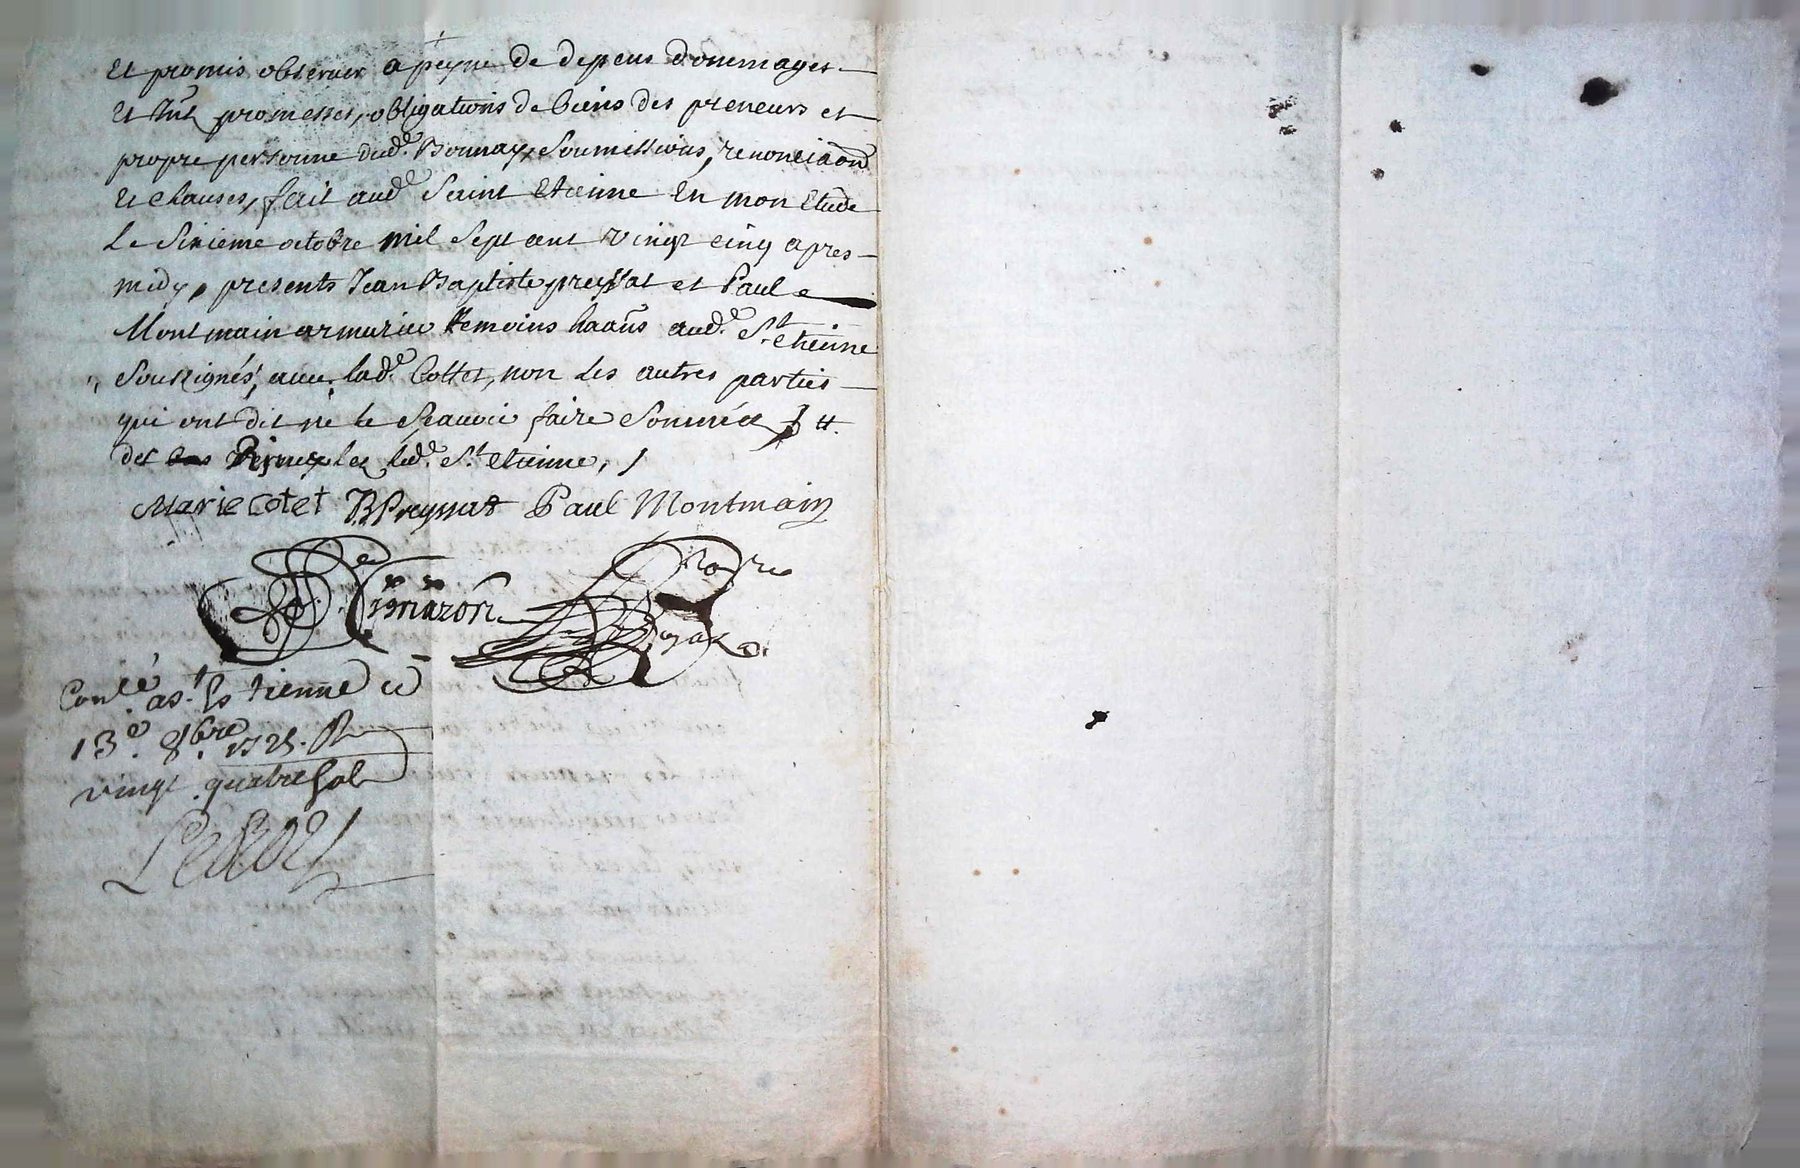 Et promis observer a peyne de depens dommages
Et promesses, obligations de biens des preneurs et
propre personne dud.e Bonnay, Soumissions, renonciaon
Et clauses, fait aud.e Saint Etienne En mon Etude
Le Sixieme octobre Mil Sept cent vingt cinq apres
midy, presents Jean Baptiste preyssat et Paul
Montmain armurier temoins haans aud.e S.t etienne
Soussignés, avec lad.e Cottet, non les autres parties
qui ont dit ne le Scavoir faire Sommées
des led.e S.t etienne,
Marie Cotet B Preyssat Paul Montmain
Simazon No.re Royal
Con.lé a S.t Estienne ce
13.e 8.bre 1725. R
vingt quatre Sols